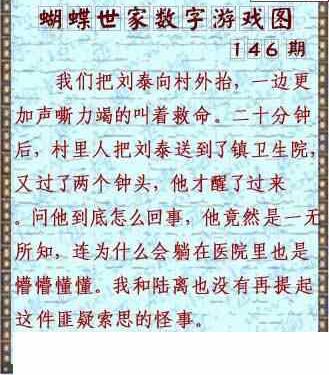 蝴蝶世家数字游戏图
146期
我们把刘泰向村外抬，一边更
加声嘶力竭的叫着救命。二十分钟
后，村里人把刘泰送到了镇卫生院，
又过了两个钟头，他才醒了过来
。问他到底怎么回事，他竟然是一无
所知，连为什么会躺在医院里也是
懵懵懂懂。我和陆离也没有再提起
这件匪疑索思的怪事。